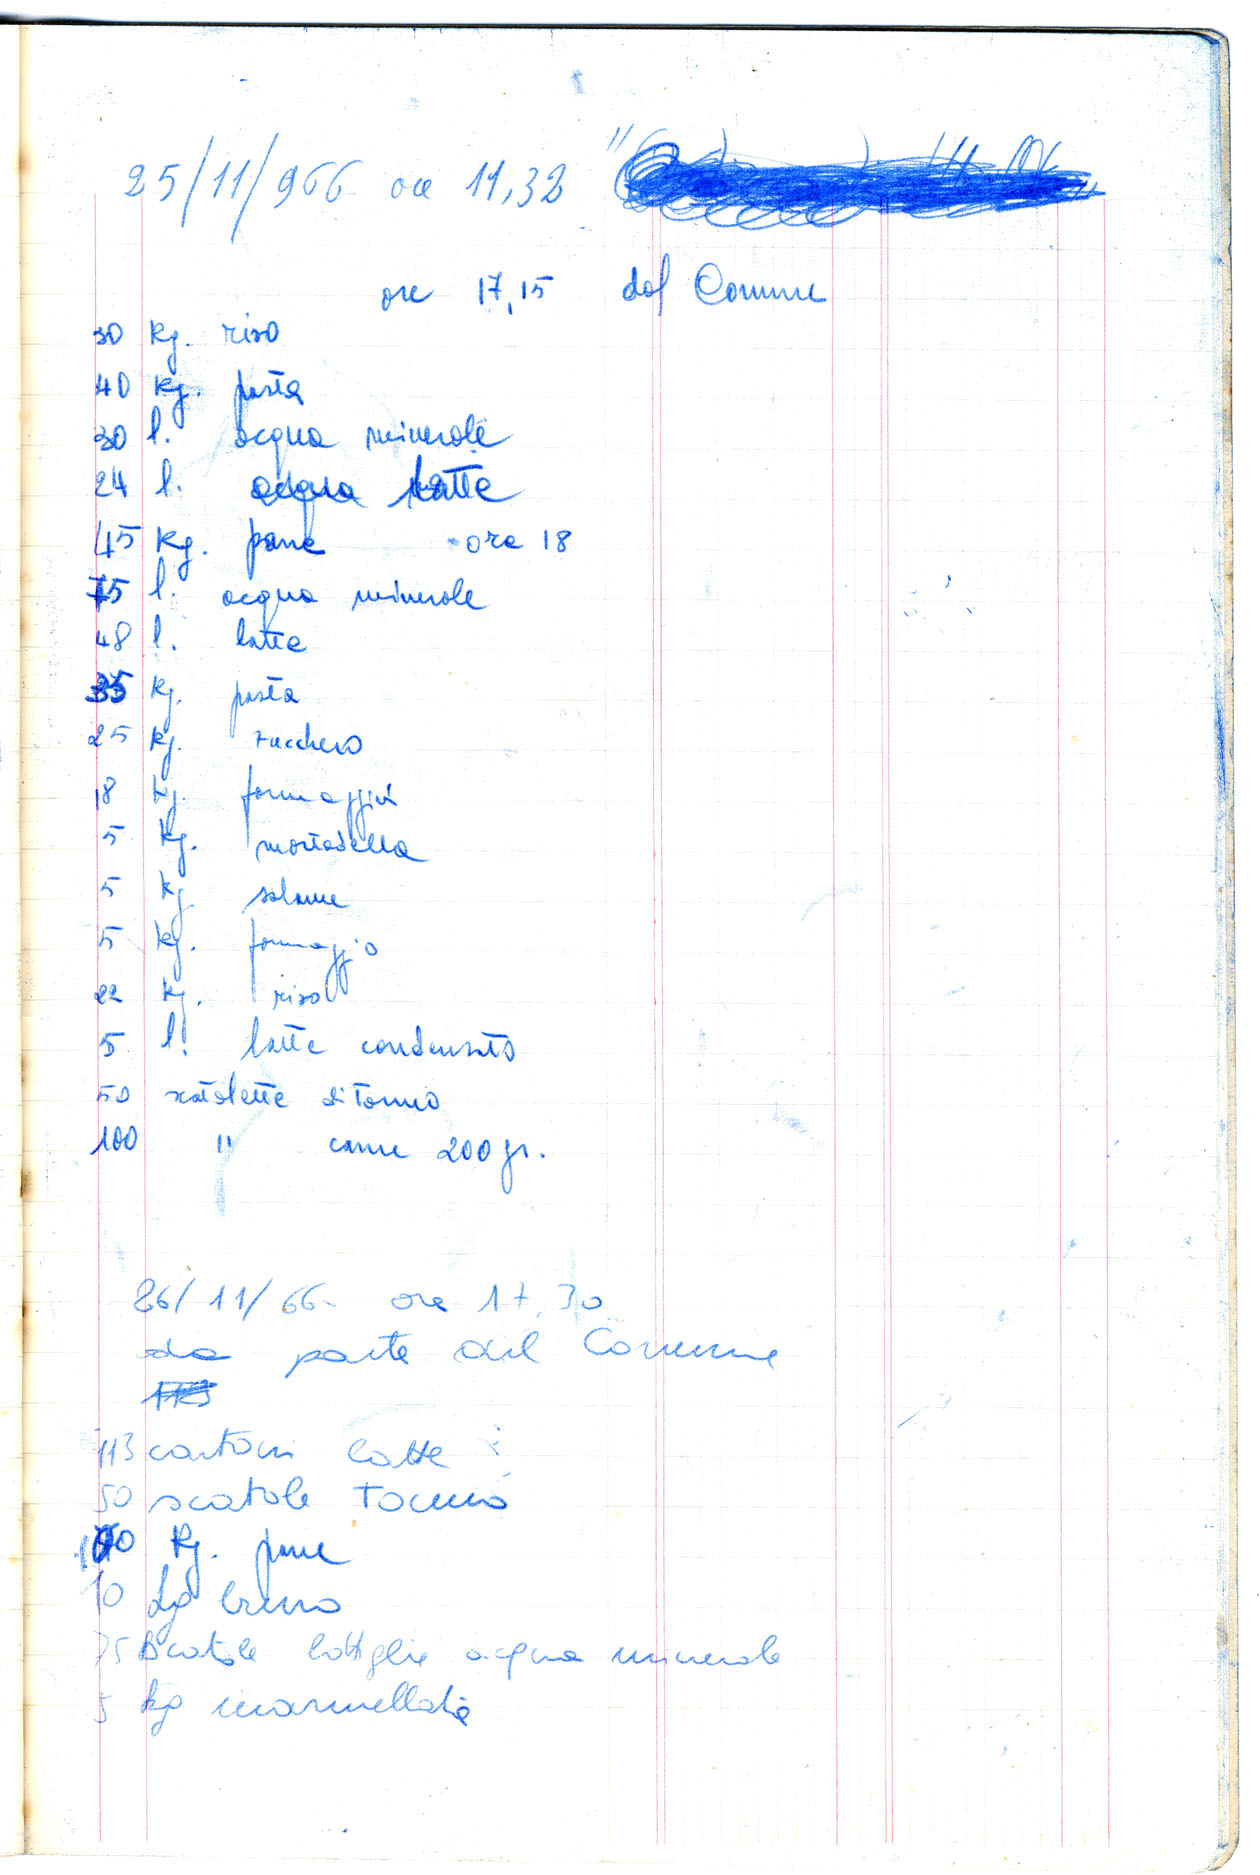 25/11/966 ore 11,32
ore 17,15 dal Comune
30 kg. riso
40 kg. pasta
30 l. acqua minerale
24 l. acqua latte
45 kg. pane ore 18
75 l. acqua minerale
48 l. latte
35 kg. pasta
25 kg. zucchero
18 kg. formaggini
5 kg. mortadella
5 kg salame
5 kg. formaggio
22 kg. riso
5 l. latte condensato
50 scatolette di tonno
100 " carne 200 gr.
26/11/66 ore 17.30
da parte del Comune
113
113 cartoni latte
50 scatole Tonno
kg. pane
10 kg
75 scatole bottiglie acqua minerale
5 kg marmellata